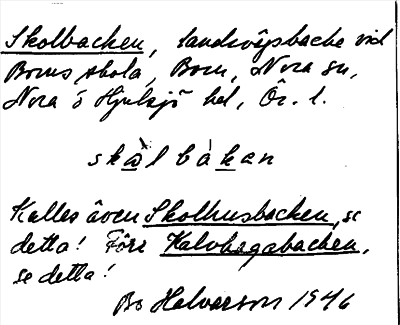 Skolbacken, landsvägsbacke vid
Borns skola, Born, Nora sn,
Nora o Hjulsjö hd, Ör. l.
skọlbàkan
Kallas även Skolhusbacken, se
detta! Förr Kalvhagabacken,
se detta!
Bo Halvarson 1946